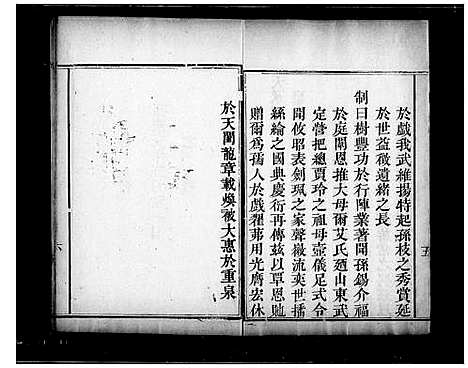 於戲我武維揚特起孫枝之秀賞延
於世益徵遺緒之長
制曰樹豐功於行陣業著聞孫錫介福
於庭闈恩推大母爾艾氏廼山東武
定營把總賈玲之祖母壺儀足式令
聞攸昭表劍珮之家聲徽流奕世播
絲綸之國典慶衍再傳茲以覃恩貤
贈爾為孺人於戲翟茀用光膺宏休
五
於天闈龍章載煥被大惠於重泉
六